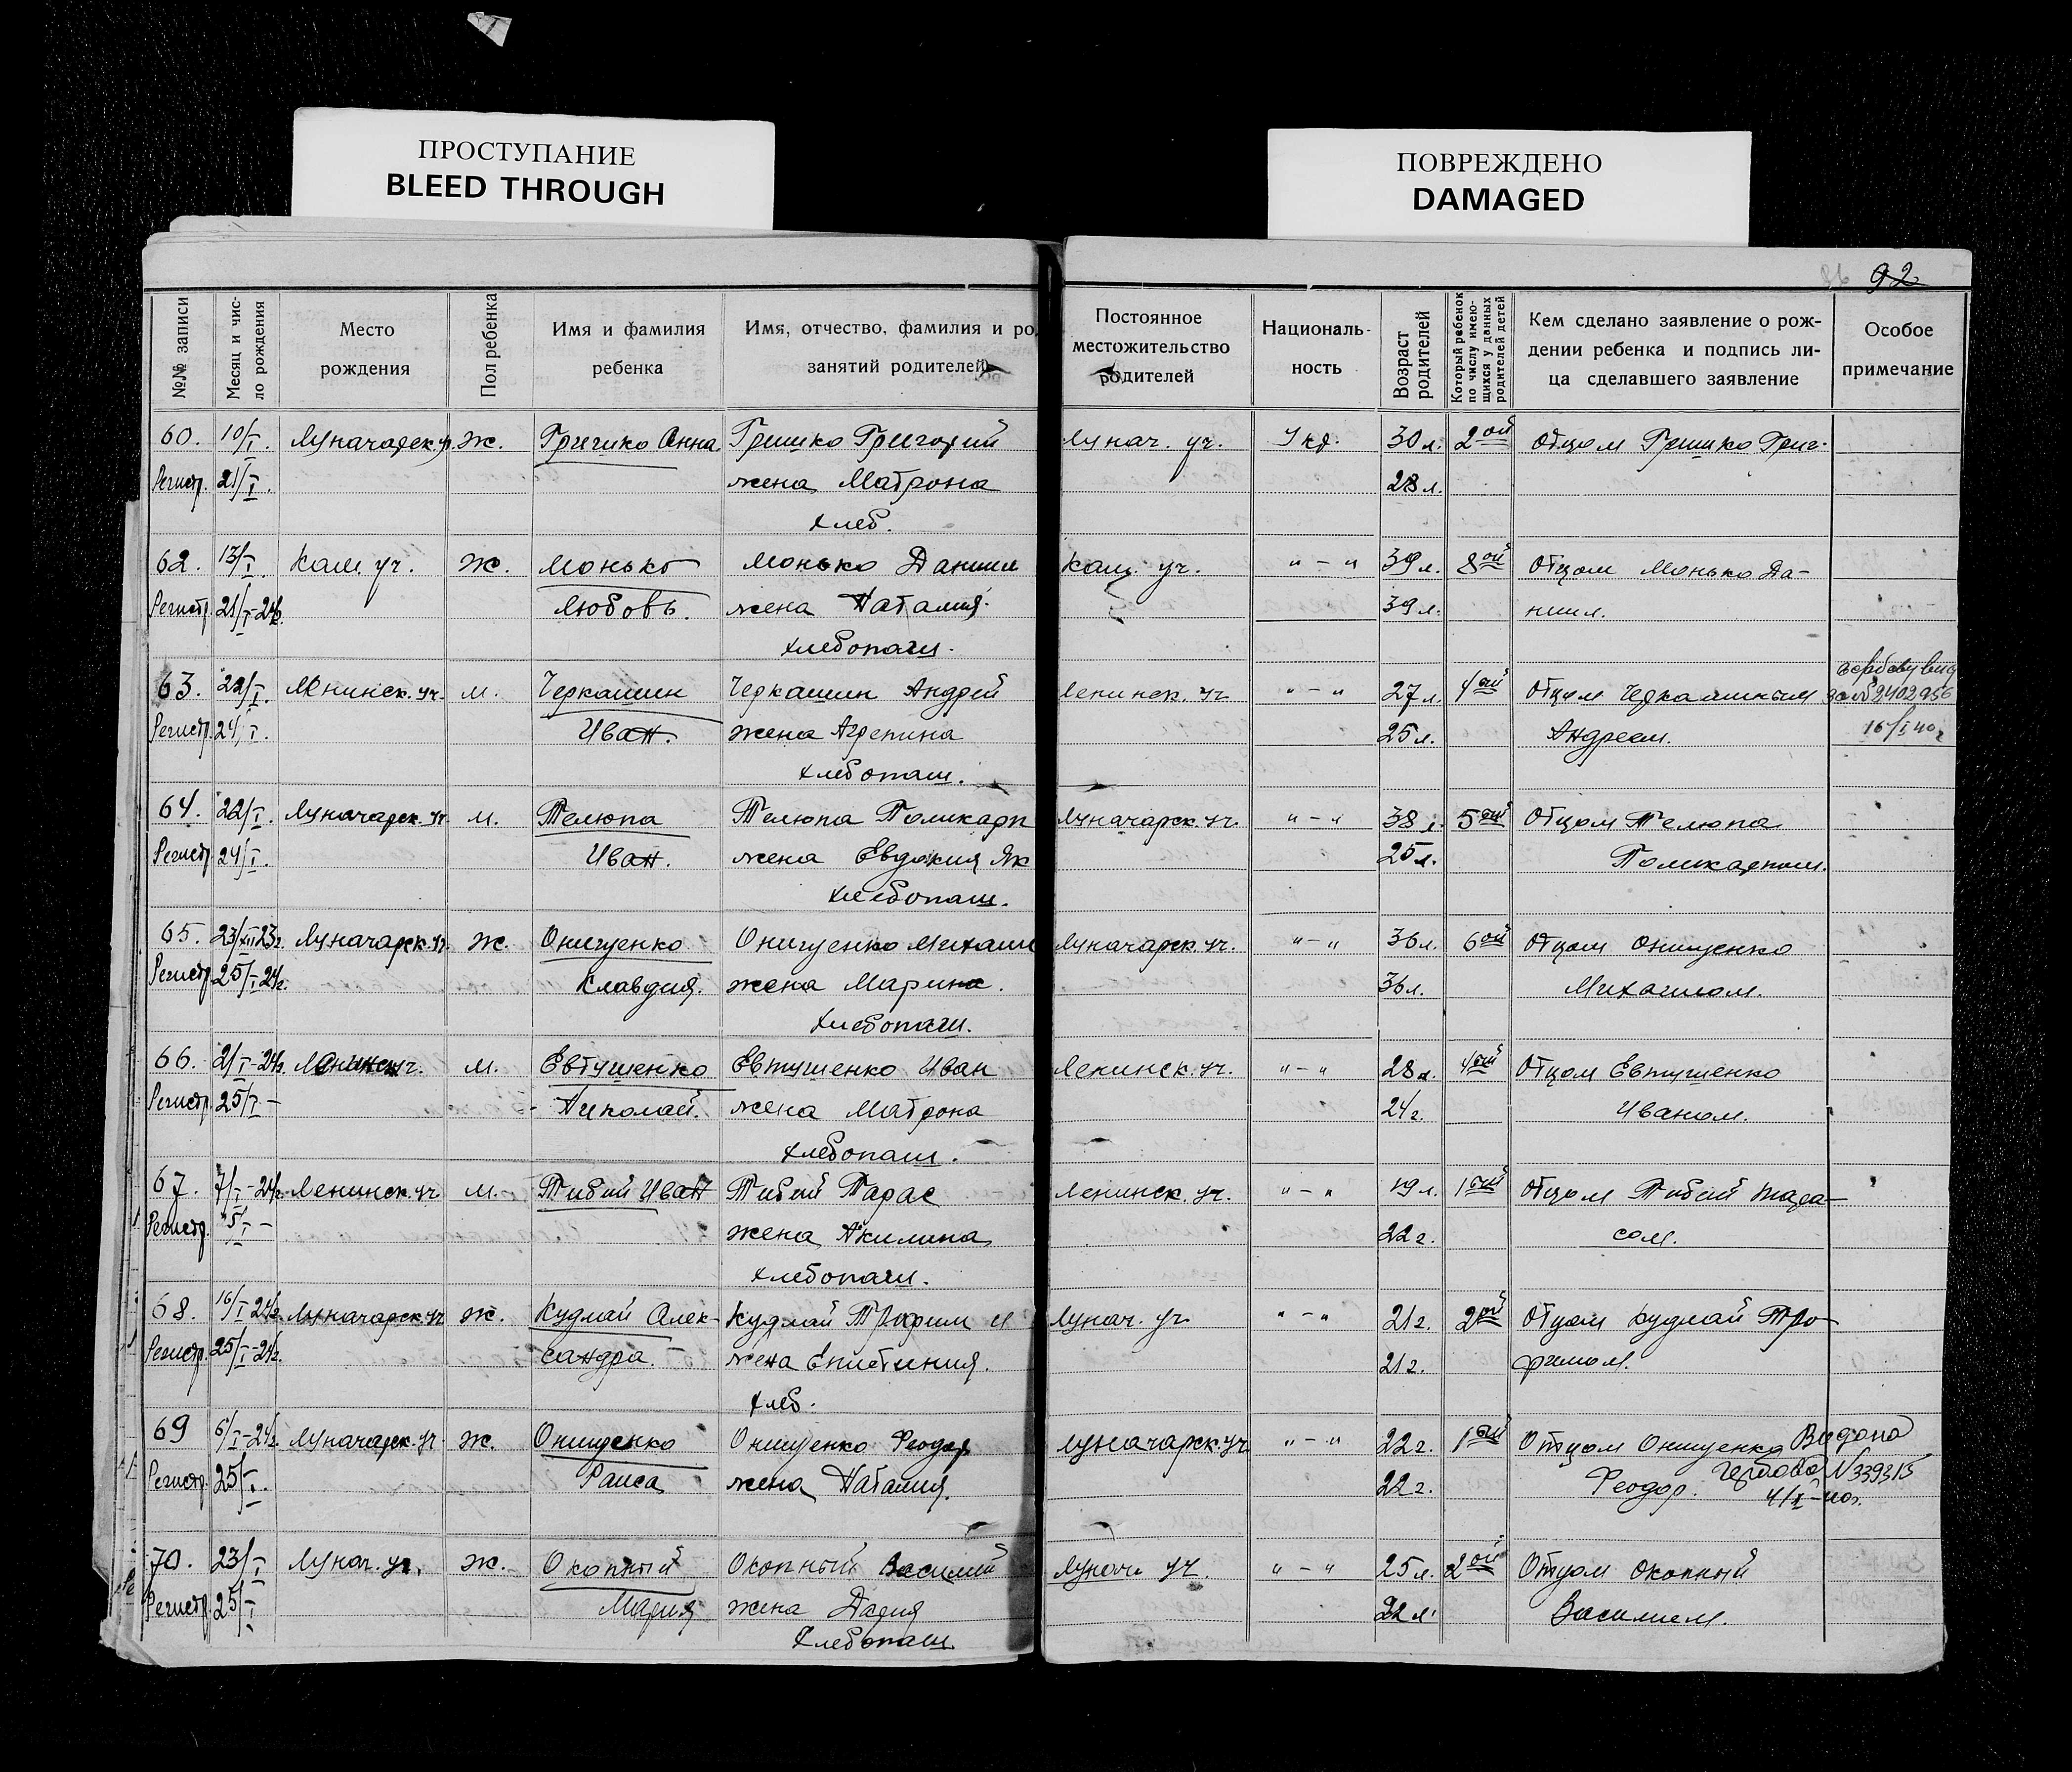 ПРОСТУПАНИЕ
BLEED THROUGH
ПОВРЕЖДЕНО
DAMAGED
92
№№ записи
Месяц и чис-
ло рождения
Место
рождения
Пол ребенка
Имя и фамилия
ребенка
Имя, отчество, фамилия и ро
занятий родителей
Постоянное
местожительство
родителей
Националь-
ность
Возраст
родителей
Который ребенок
по числу имею-
щихся у данных
родителей детей
Кем сделано заявление о рож-
дении ребенка и подпись ли-
ца сделавшего заявление
Особое
примечание
60. 10/I. Луначарск. уч. ж. Гришко Анна Гришко Григорий Лунач. уч. Укр. 30 л. 2ой Отцом Гришко Григ.
Регистр. 21/I. жена Матрона 28 л.
хлеб.
62. 13/I. Кам. уч. ж. Монько Монько Даниил Кам. уч. "-" 39 л. 8ой Отцом Монько Да-
Регистр. 21/I-24г. Любовь. жена Наталия. 39 л. ниил.
хлебопаш.
63. 22/I. Ленинск. уч. м. Черкашин Черкашин Андрей Ленинск. уч. "-" 27 л. 4ый Отцом Черкашиным за № 2402956
Регистр. 24/I. Иван. жена Агрепина 25 л. Андреем. 16/I 40г
хлебопаш.
64. 22/I. Луначарск. уч. м. Телюпа Телюпа Поликарп Луначарск. уч. "-" 38 л. 5ый Отцом Телюпа
Регистр. 24/I. Иван. жена Евдокия Як 25 л. Поликарпом.
хлебопаш.
65. 23/XII 23г. Луначарск. уч. ж. Онищенко Онищенко Михаил Луначарск. уч. "-" 36 л. 6ой Отцом Онищенко
Регистр. 25/I-24г. Клавдия. жена Марина. 36 л. Михаилом.
хлебопаш.
66. 21/I-24г. Ленинск уч. м. Евтушенко Евтушенко Иван Ленинск. уч. "-" 28 л. 4ый Отцом Евтушенко
Регистр. 25/I - Николай. жена Матрона 24 г. Иваном.
хлебопаш.
67. 7/I-24г. Ленинск. уч м. Тибий Иван Тибий Тарас Ленинск. уч. "-" 19 л. 1ый Отцом Тибий Тара-
Регистр. "5/I - жена Акилина 22 г. сом.
хлебопаш.
68. 16/I 24г. Луначарск. уч ж. Кудлай Алек- Кудлай Трофим и Лунач. уч. "-" 21 г. 2ой Отцом Кудлай Тро-
Регистр. 25/I-24г. сандра. жена Епистиния. 21 г. фимом.
хлеб.
69 6/I-24г. Луначарск. уч. ж. Онищенко Онищенко Феодор Луначарск. уч "-" 22 г. 1ый Отцом Онищенко Видано
Регистр. 25/I. Раиса жена Наталия. 22 г. Феодор. гербовой N 339315
4/I-40г.
70. 23/I Лунач. уч. ж. Окопный Окопный Василий Лунач. уч. "-" 25 л. 2ой Отцом Окопный
Регистр. 25/I Мария жена Дария 22 л. Василием.
хлебопаш